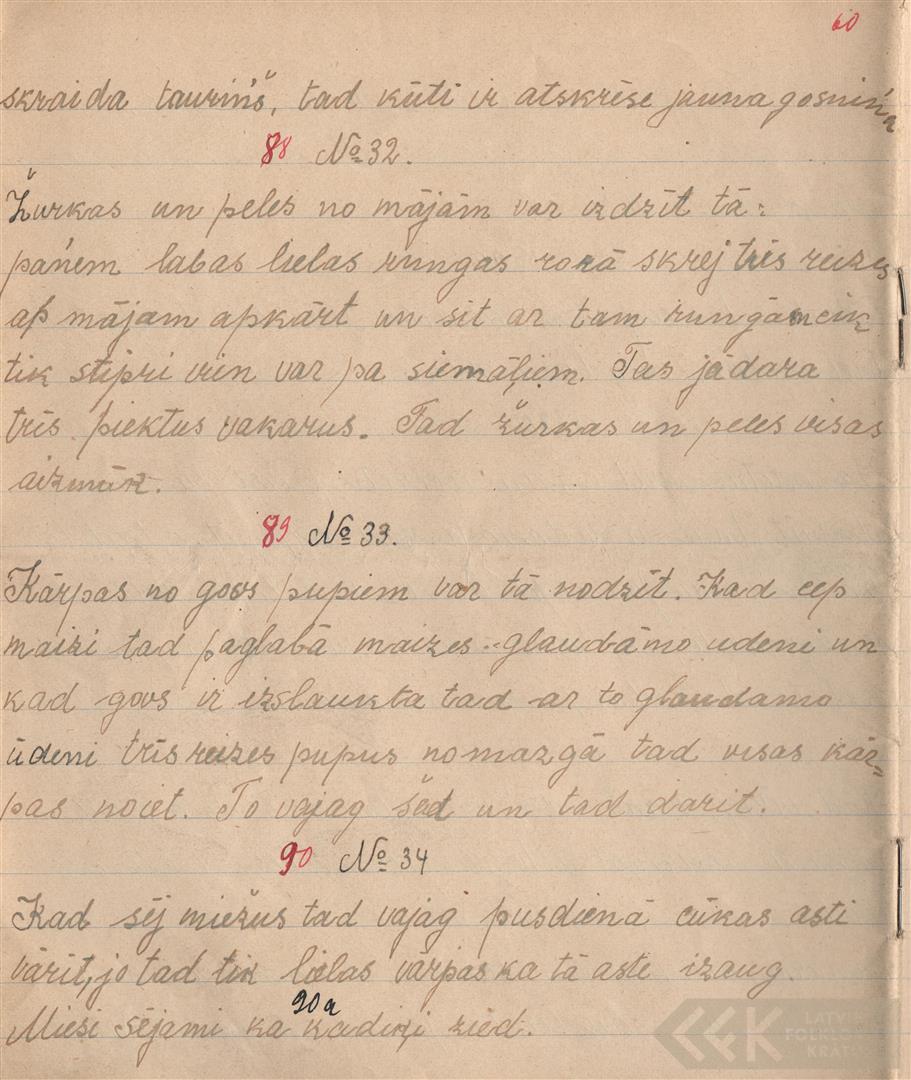 60
skraida tauriņš, tad kūtī ir atskrēse jauna gosniņa
88 № 32.
Žurkas un peles no mājām var izdzīt tā:
paņem labas lielas rungas rokā skrej trīs reizes
ap mājam apkārt un sit ar tam rungām cik
tik stipri vien var pa siemāļiem. Tas jādara
trīs piektus vakarus. Tad žurkas un peles visas
aizmūk.
89 № 33.
Kārpas no govs pupiem var tā nodzīt. Kad cep
maizi tad paglabā maizes glaudāmo udeni un
kad govs ir izslaukta tad ar to glaudamo
ūdeni trīs reizes pupus nomazgā tad visas kār=
pas noiet. To vajag šad un tad darit.
90 № 34
Kad sēj miežus tad vajag pusdienā cūkas asti
vārit, jo tad tik lielas vārpas ka tā aste izaug.
90a
Mieži sējami ka kadiķi zied.
LATV
FOLKL
KRĀT